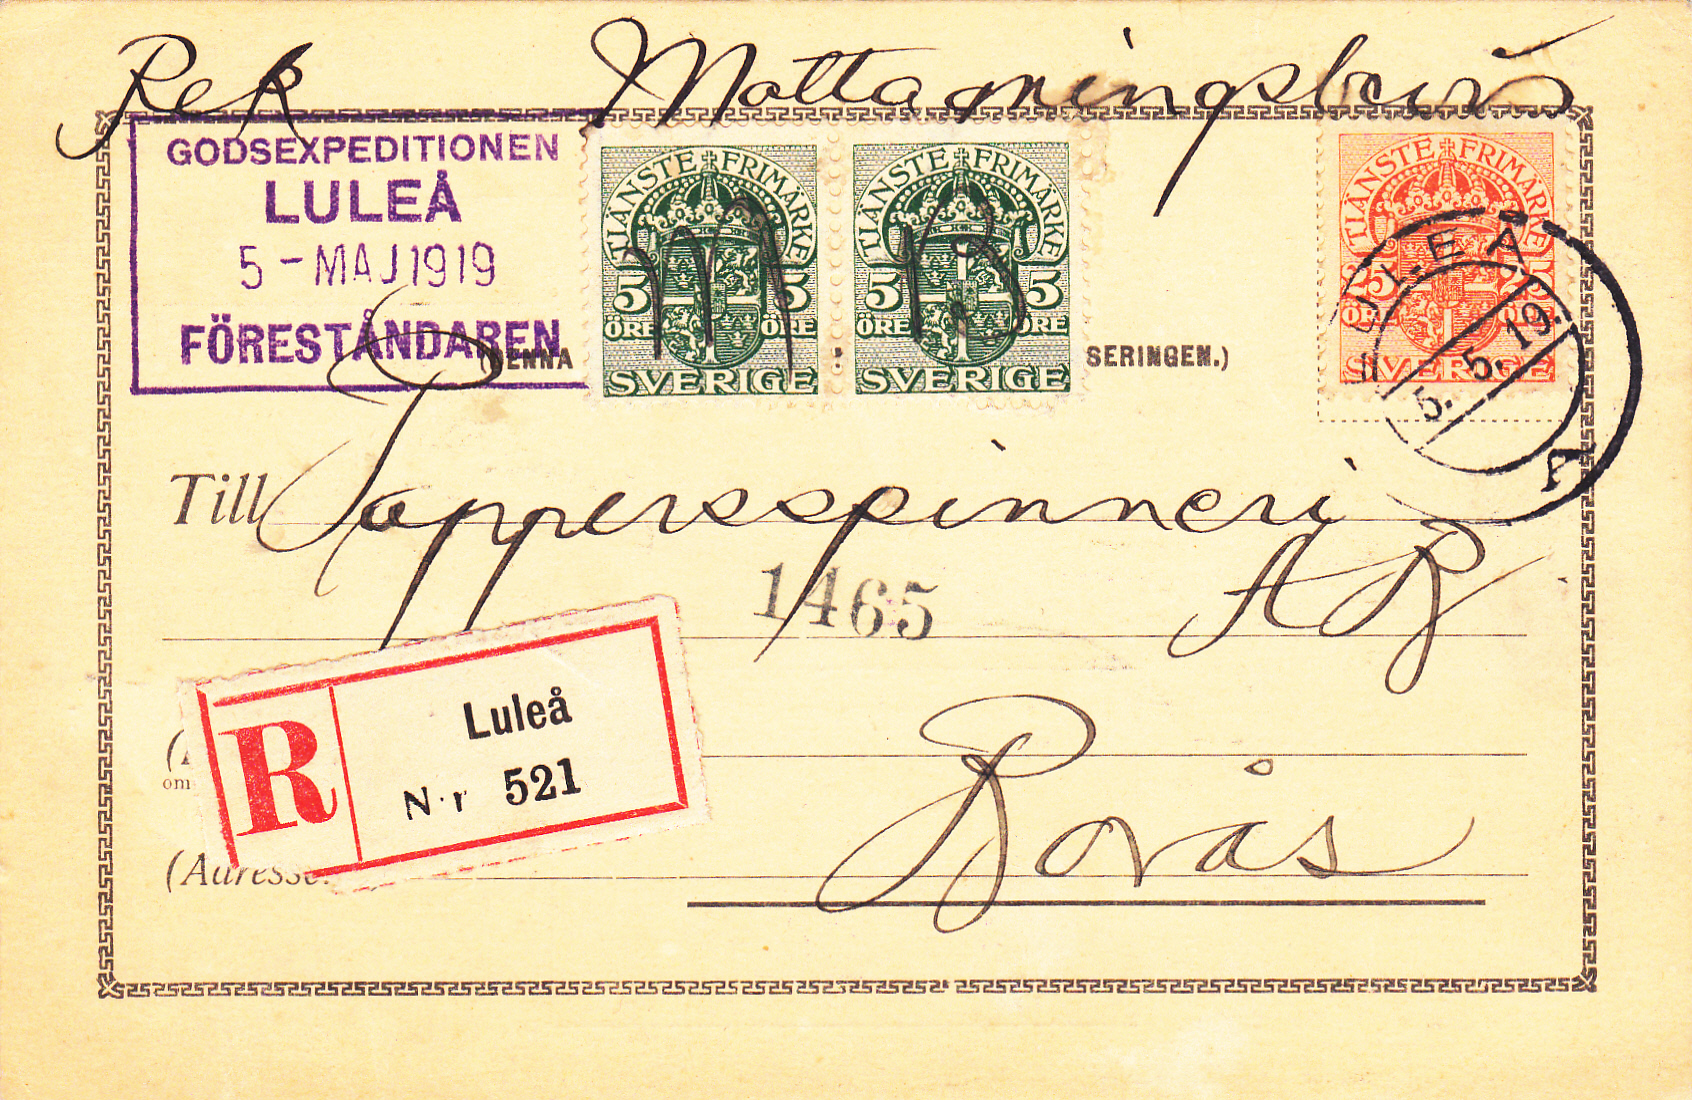 Rek Mottagningsbevis
GODSEXPEDITIONEN
LULEÅ
5 - MAJ 1919
FÖRESTÅNDAREN
TJÄNSTE FRIMÄRKE
5 5
ÖRE ÖRE
SVERIGE
TJÄNSTE FRIMÄRKE
5 5
ÖRE ÖRE
SVERIGE
M B
TJÄNSTE FRIMÄRKE
ÖRE
SVERIGE
LULEÅ
5. 5. 19.
A
(DENNA SERINGEN.)
Till Tappersspinneri
AB
1465
R
Luleå
Nr 521
om
Borås
(Adresse